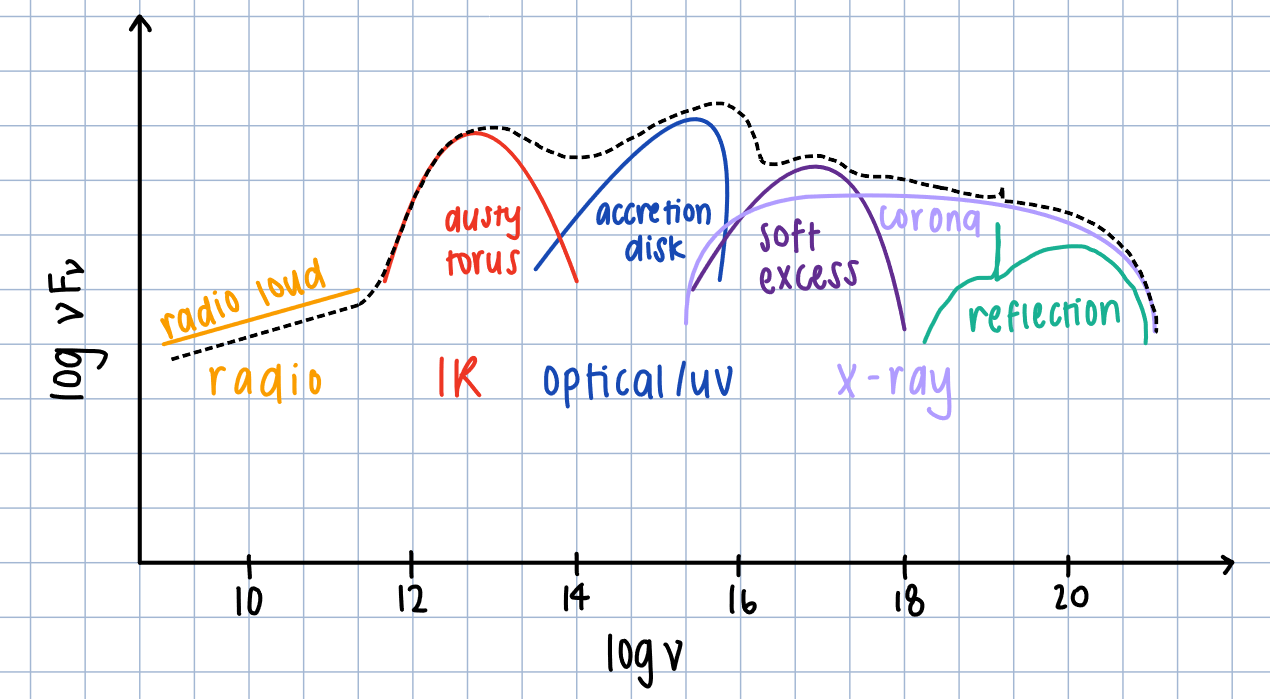 log νFν
radio loud
dusty
torus
accretion
disk
soft
excess
corona
reflection
radio
IR
optical/uv
x-ray
10
12
14
16
18
20
log ν